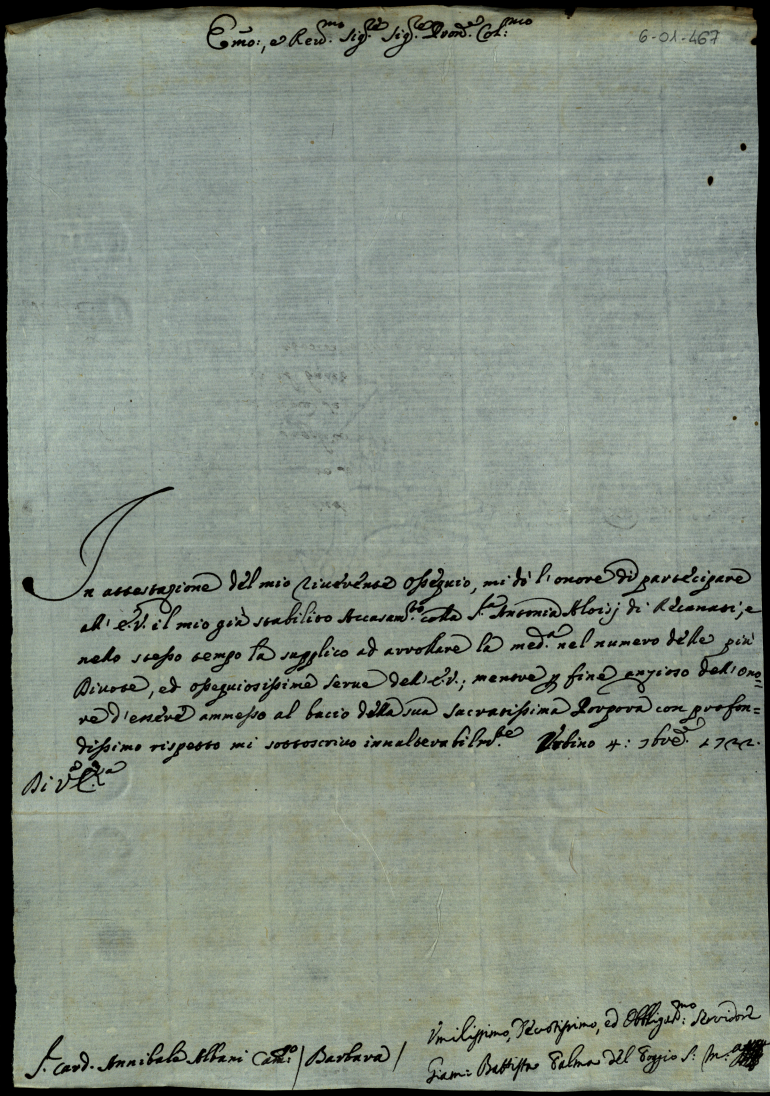 Em̃o:, e Rev.mo Sig.re Sig.re Pron.e Col:mo
6-01-467
In attestazione del mio riverente Ossequio, mi dò l'onore di partecipare
all'E.V. il mio già stabilito Accasam.to colla S.ra Antonia Aloisj di Recanati, e
nello stesso tempo la supplico ad arrollare la med.a nel numero delle più
Divote, ed ossequiosissime serve dell'E.V.; mentre p fine anzioso dell'Ono=
re d'essere ammesso al baccio della sua sacratissima Porpora con profon=
dissimo rispetto mi sottoscrivo innalterabilm.te Urbino 4: 9bre 1722.
Di V.a E.za
Umilissimo, Devotissimo, ed Obbligat.mo: Servidore
S.r Card. Annibale Albani Cam:o / Barbara /
Giam: Battista Palma del Poggio S.